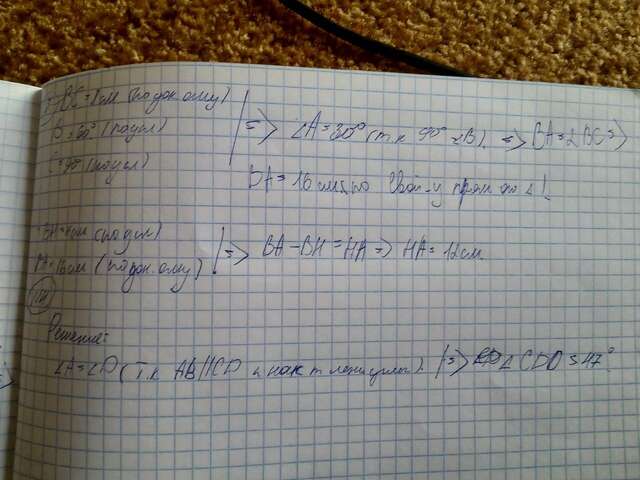 BC=8см (по док-ому)
B=60° (по усл) => ∠A=30° (т.к 90°-∠B). => BA=2BC=>
C=90° (по усл)
BA=16см, по свой-у прям-го ∠!
BH=4см (по усл)
BA=16см (по док-ому) => BA-BH=HA => HA=12см.
Решение:
∠A=∠D (т.к AB||CD и накр лежащие) => ∠CDO=47°